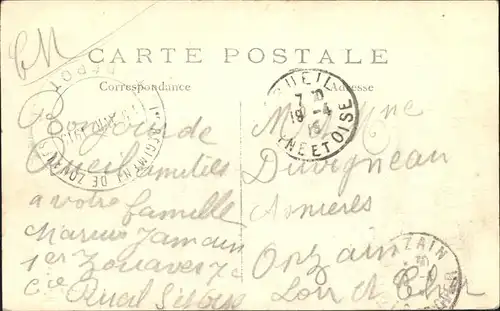 FM
CARTE POSTALE
Correspondance
Adresse
DÉPÔT
1er RÉGIMENT DE ZOUAVES
RUEIL
7 30
19 -4
15
SEINE ET OISE
Bonjour de
Rueil amitiés
a votre famille
Marius Jamain
1er Zouaves 7e
Cie Rueil S et Oise
Duvigneau
Asnieres
Onzain
Loir et Cher
ONZAIN